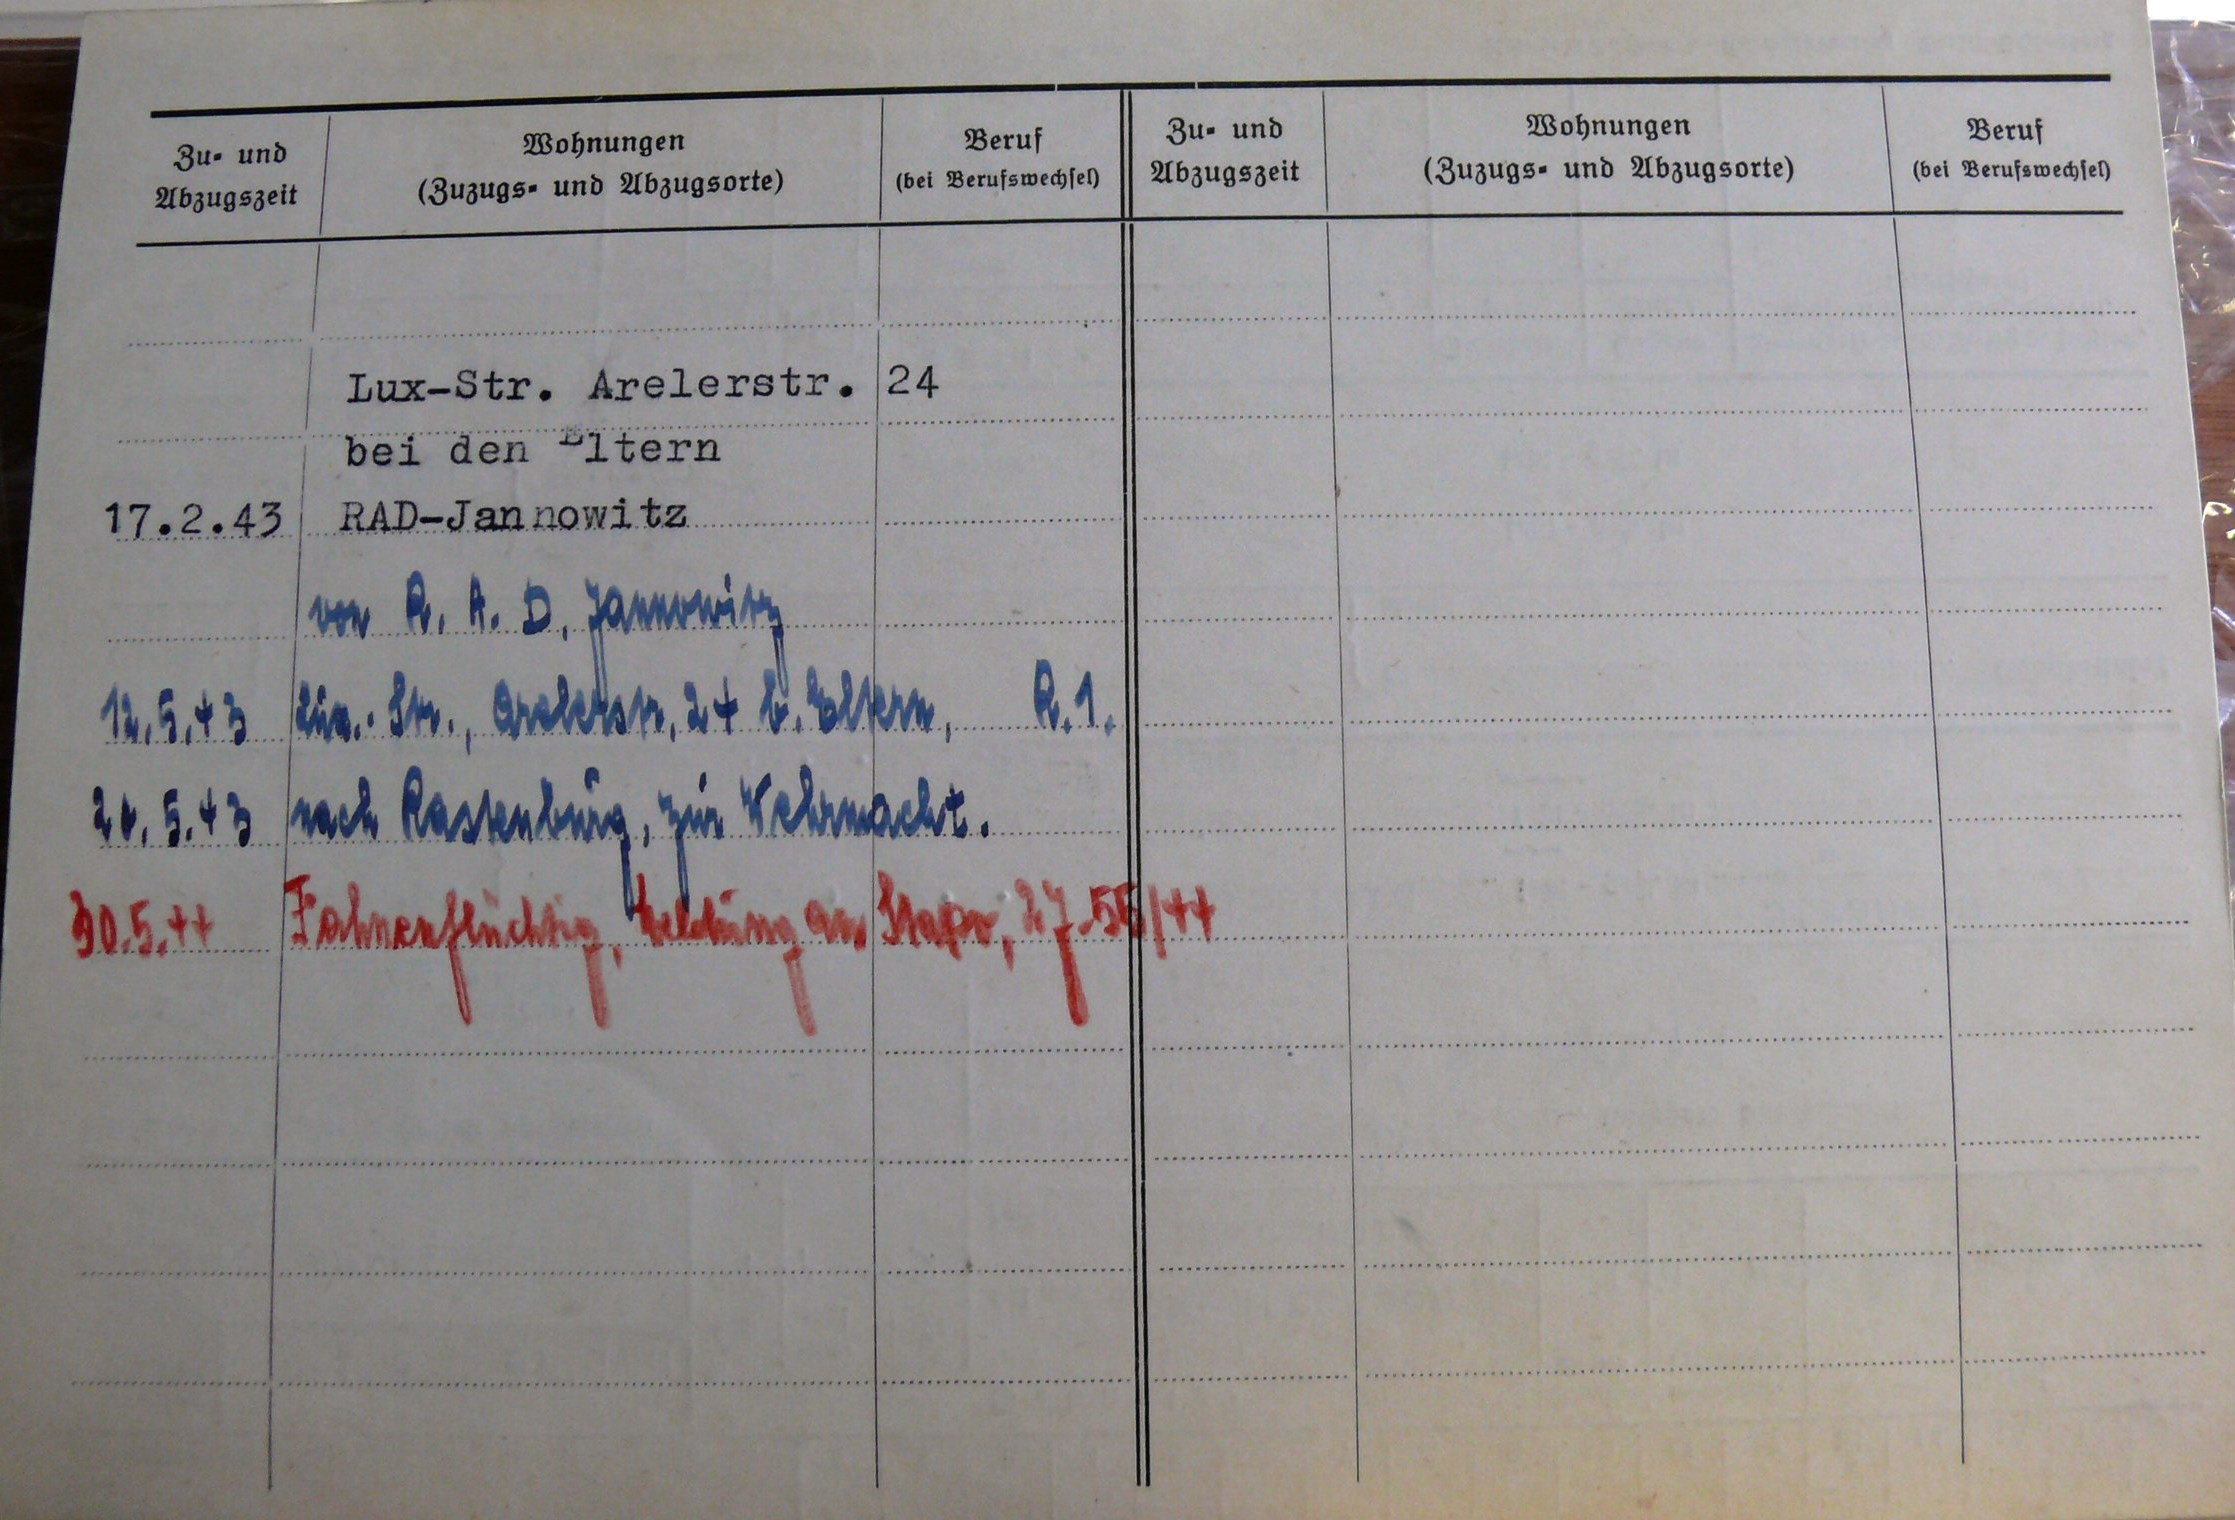 Zu- und Abzugszeit
Wohnungen
(Zuzugs- und Abzugsorte)
Beruf
(bei Berufswechsel)
Zu- und Abzugszeit
Wohnungen
(Zuzugs- und Abzugsorte)
Beruf
(bei Berufswechsel)
Lux-Str. Arelerstr. 24
bei den Eltern
17.2.43 RAD-Jannowitz
von R. A. D. Jannowitz
12.5.43 Lux.-Str., Arelerstr. 24 b. Eltern, R.1.
5.43 nach Rastenburg, zur Wehrmacht.
30.5.44 Fahnenflüchtig, Meldung an Stapo, 27.55/44